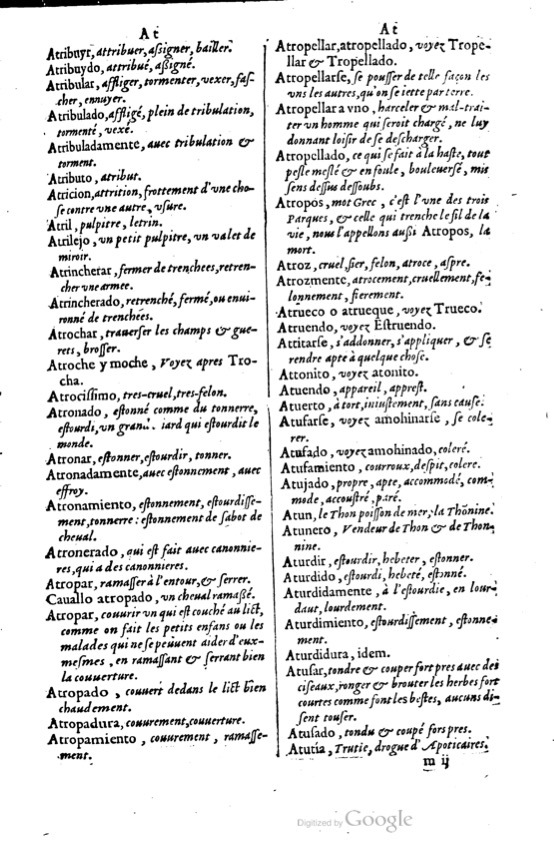 At
Atribuyr, attribuer, aſsigner, bailler.
Atribuydo, attribué, aſsigné.
Atribular, affliger, tormenter, vexer, faſ-
cher, ennuyer.
Atribulado, affligé, plein de tribulation,
tormenté, vexé.
Atribuladamente, auec tribulation &
torment.
Atributo, atribut.
Atricion, attrition, frottement d'vne cho-
ſe contre vne autre, vſure.
Atril, pulpitre, letrin.
Atrilejo, vn petit pulpitre, vn valet de
miroir.
Atrincherar, fermer de trenchees, retren-
cher vne armee.
Atrincherado, retrenché, fermé, ou enui-
ronné de trenchées.
Atrochar, trauerſer les champs & gue-
rets, broſſer.
Atroche y moche, Voyez apres Tro-
cha.
Atrociſsimo, tres-cruel, tres-felon.
Atronado, eſtonné comme du tonnerre,
eſtourdi, vn gran iard qui eſtourdit le
monde.
Atronar, eſtonner, eſtourdir, tonner.
Atronadamente, auec eſtonnement, auec
effroy.
Atronamiento, eſtonnement, eſtourdiſſe-
ment, tonnerre: eſtonnement de ſabot de
cheual.
Atronerado, qui eſt fait auec canonnie-
res, qui a des canonnieres.
Atropar, ramaſſer à l'entour, & ſerrer.
Cauallo atropado, vn cheual ramaſſé.
Atropar, couurir vn qui eſt couché au lict,
comme on fait les petits enfans ou les
malades qui ne ſe peuuent aider d'eux-
meſmes, en ramaſſant & ſerrant bien
la couuerture.
Atropado, couuert dedans le lict bien
chaudement.
Atropadura, couurement, couuerture.
Atropamiento, couurement, ramaſſe-
ment.
At
Atropellar, atropellado, voyez Trope-
llar & Tropellado.
Atropellarſe, ſe pouſſer de telle façon les
vns les autres, qu'on ſe iette par terre.
Atropellar a vno, harceler & mal-trai-
ter vn homme qui ſeroit chargé, ne luy
donnant loiſir de ſe deſcharger.
Atropellado, ce qui ſe fait à la haſte, tout
peſle meſlé & en foule, bouleuerſé, mis
ſens deſſus deſſoubs.
Atropos, mot Grec, c'eſt l'vne des trois
Parques, & celle qui trenche le fil de la
vie, nous l'appellons außi Atropos, la
mort.
Atroz, cruel, fier, felon, atroce, aſpre.
Atrozmente, atrocement, cruellement, fe-
lonnement, fierement.
Atrueco o atrueque, voyez Trueco.
Atruendo, voyez Eſtruendo.
Attitarſe, s'addonner, s'appliquer, & ſe
rendre apte à quelque choſe.
Attonito, voyez atonito.
Atuendo, appareil, appreſt.
Atuerto, à tort, iniuſtement, ſans cauſe.
Atufarſe, voyez amohinarſe, ſe cole-
rer.
Atufado, voyez amohinado, coleré.
Atufamiento, courroux, deſpit, colere.
Atujado, propre, apte, accommodé, com-
mode, accouſtré, paré.
Atun, le Thon poiſſon de mer, la Thonine.
Atunero, Vendeur de Thon & de Thon-
nine.
Aturdir, eſtourdir, hebeter, eſtonner.
Aturdido, eſtourdi, hebeté, eſtonné.
Aturdidamente, à l'eſtourdie, en lour-
daut, lourdement.
Aturdimiento, eſtourdiſſement, eſtonne-
ment.
Aturdidura, idem.
Atuſar, tondre & couper fort pres auec des
ciſeaux, ronger & brouter les herbes fort
courtes comme font les beſtes, aucuns di-
ſent touſer.
Atuſado, tondu & coupé fors pres.
Atutia, Trutie, drogue d'Apoticaires.
m ij
Digitized by Google